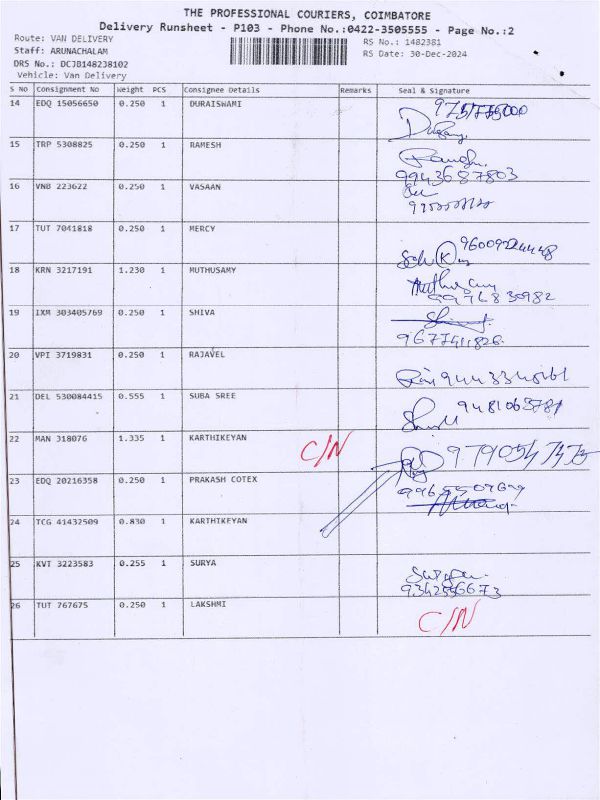 THE PROFESSIONAL COURIERS, COIMBATORE
Delivery Runsheet - P103 - Phone No.:0422-3505555 - Page No.:2
Route: VAN DELIVERY
RS No.: 1482381
Staff: ARUNACHALAM
RS Date: 30-Dec-2024
DRS No.: DCJB148238102
Vehicle: Van Delivery
S NO Consignment No Weight PCS Consignee Details Remarks Seal & Signature
14 EDQ 15056650 0.250 1 DURAISWAMI
15 TRP 5308825 0.250 1 RAMESH
9943687803
16 VNB 223622 0.250 1 VASAAN
17 TUT 7041818 0.250 1 MERCY
18 KRN 3217191 1.230 1 MUTHUSAMY
9976830982
19 IXM 303405769 0.250 1 SHIVA
9677411826
20 VPI 3719831 0.250 1 RAJAVEL
21 DEL 530084415 0.555 1 SUBA SREE
9481063781
22 MAN 318076 1.335 1 KARTHIKEYAN C/N
23 EDQ 20216358 0.250 1 PRAKASH COTEX
24 TCG 41432509 0.830 1 KARTHIKEYAN
25 KVT 3223583 0.255 1 SURYA
26 TUT 767675 0.250 1 LAKSHMI C/N